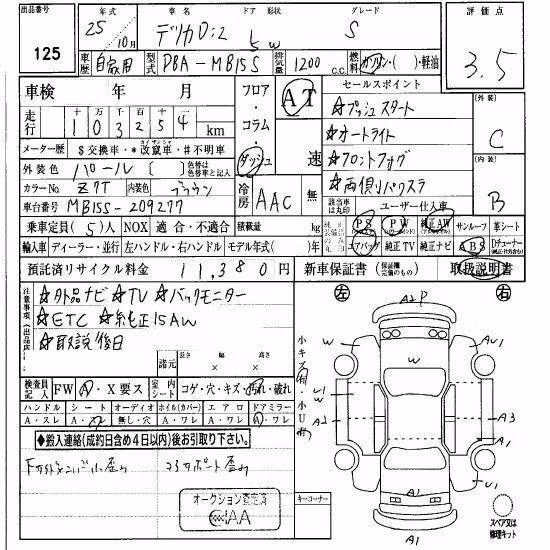 出品番号 年式 車名 ドア 形状 グレード 評価点
125 25年 10月 デリカD:2 5 W S 3.5
車歴 自家用 型式 DBA-MB15S 排気量 1200 c.c. 燃料 ガソリン・軽油
車検 年 月 フロア・コラム・ダッシュ AT 速 セールスポイント
走行 十万千百十一 103254 km
☆プッシュスタート
☆オートライト
☆フロントフォグ
外装 C
メーター歴 $交換車・*改竄車・#不明車
カイザンシャ
外装色 パール ( ) 色替は色替車と記入
☆両側パワスラ
内装 B
カラーNo. Z7T 内装色 ブラウン 冷房 AAC 無 該当車は丸印 ユーザー仕入車
車台番号 MB15S-209277
乗車定員 (5)人 NOX 適合・不適合 積載量 kg PS PW 純正AW サンルーフ 革シート
輸入車 ディーラー・並行 左ハンドル・右ハンドル モデル年式( )年 エアバッグ 純正TV 純正ナビ ABS Dチューナー
預託済リサイクル料金 11,380円 新車保証書(保証欄完備のもの) 取扱説明書
注意事項(出品店)
☆社外品ナビ ☆TV ☆バックモニター
☆ETC ☆純正15AW
☆取説後日
諸元 長さ × 幅 × 高さ
左 右
小キズ有・小U有
検査員記入 FW A・X要ス 室内シート コゲ・穴・キズ・汚れ・破れ
ハンドル シート オーディオ ホイル(カバー) エアロ ドアミラー
A・スレ A・ワレ 無し・穴 A・ワレ A・ワレ A・ワレ
◆搬入連絡(成約日含め4日以内)後お引取り下さい。
コアサポート歪み
オークション査定済
キーコーナー
A2 P
W AU1
W
W A3
A1
U1
A1
スペア又は修理キット